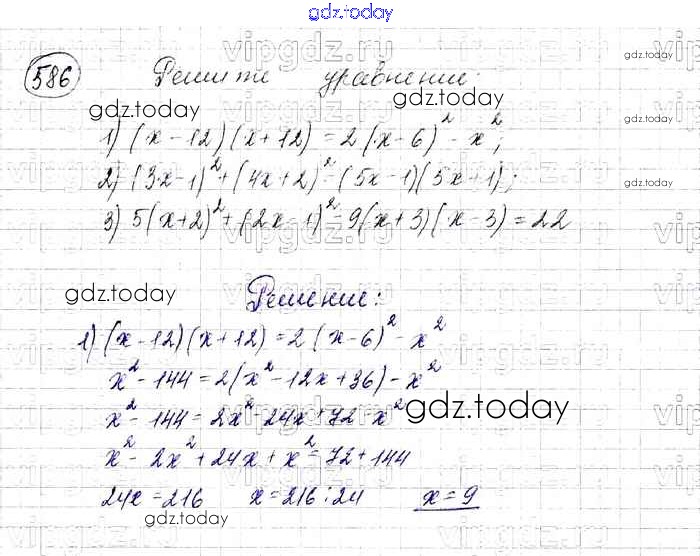 gdz.today
586 Решите уравнение:
gdz.today gdz.today
1) (x-12)(x+12) = 2(x-6)² - x²;
2) (3x-1)² + (4x+2)² = (5x-1)(5x+1);
3) 5(x+2)² + (2x-1)² - 9(x+3)(x-3) = 22
gdz.today Решение:
1) (x-12)(x+12) = 2(x-6)² - x²
x² - 144 = 2(x² - 12x + 36) - x²
x² - 144 = 2x² - 24x + 72 - x² gdz.today
x² - 2x² + 24x + x² = 72 + 144
24x = 216 x = 216 : 24 x = 9
gdz.today gdz.today